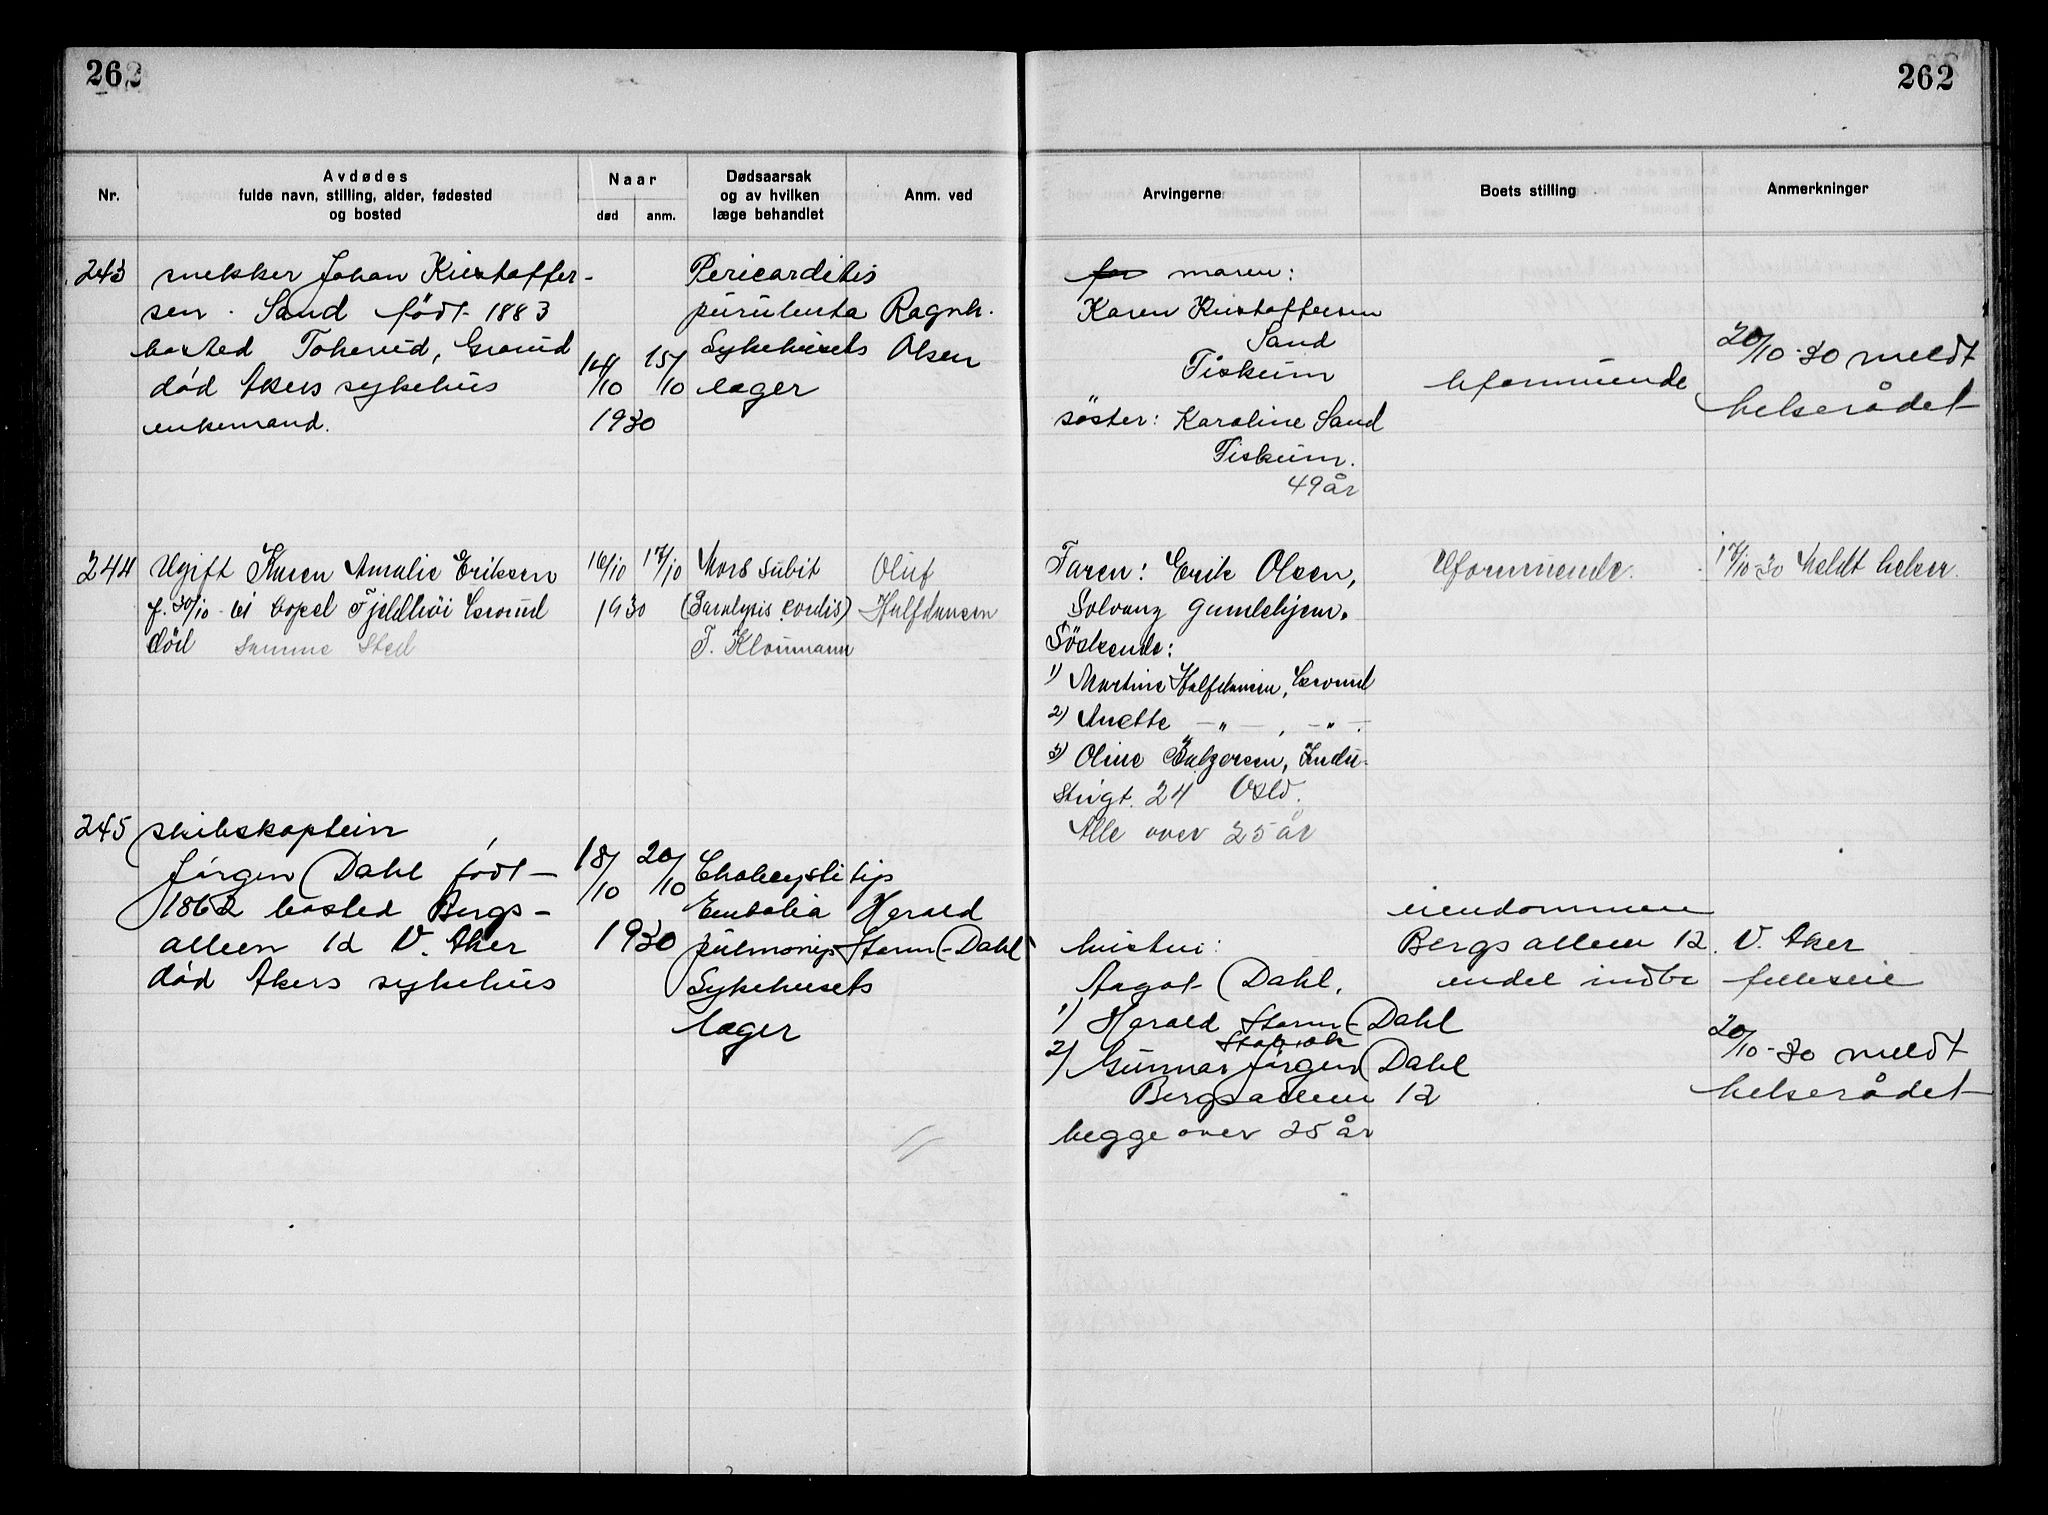 262
262
Nr.
Avdødes
fulde navn, stilling, alder, fødested
og bosted
Naar
død
anm.
Dødsaarsak
og av hvilken
læge behandlet
Anm. ved
Arvingerne
Boets stilling
Anmerkninger
243
snekker Johan Kristoffer-
sen. Sand født 1883
bosted Tokerud, Grorud
død Akers sykehus
enkemand.
14/10
15/10
1930
Pericarditis
purulenta
Sykehusets
læger
Ragnh.
Olsen
moren:
Karen Kristoffersen
Sand
Fiskum
søster: Karoline Sand
Fiskum.
49 år
Uformuende
20/10-30 meldt
helserådet
244
Ugift Karen Amalie Eriksen
f. 30/10-61 bopel Fjeldhøi Grorud
død samme sted
16/10
17/10
1930
Mors subit
(Paralysis cordis)
F. Kloumann
Oluf
Halfdansen
Faren: Erik Olsen,
Solvang gamlehjem.
Søskende:
1) Martine Halfdansen, Grorud
2) Anette — " — , — " —.
3) Oline , Indu-
strigt. 24 Oslo.
Alle over 25 år
Uformuende.
17/10-30 Meldt helser.
245
skibskaptein
Jørgen Dahl født
1862 bosted Bergs-
alleen 12 V. Aker
død Akers sykehus
18/10
20/10
1930
Cholecystitis
Embolia
pulmonis
Sykehusets
læger
Harald
Storm-Dahl
hustru:
Aagot Dahl.
1) Harald Storm-Dahl
2) Gunnar Jørgen Dahl
Bergsalleen 12
begge over 25 år
eiendommen
Bergsalleen 12. V. Aker
endel indbo
felleseie
20/10-30 meldt
helserådet